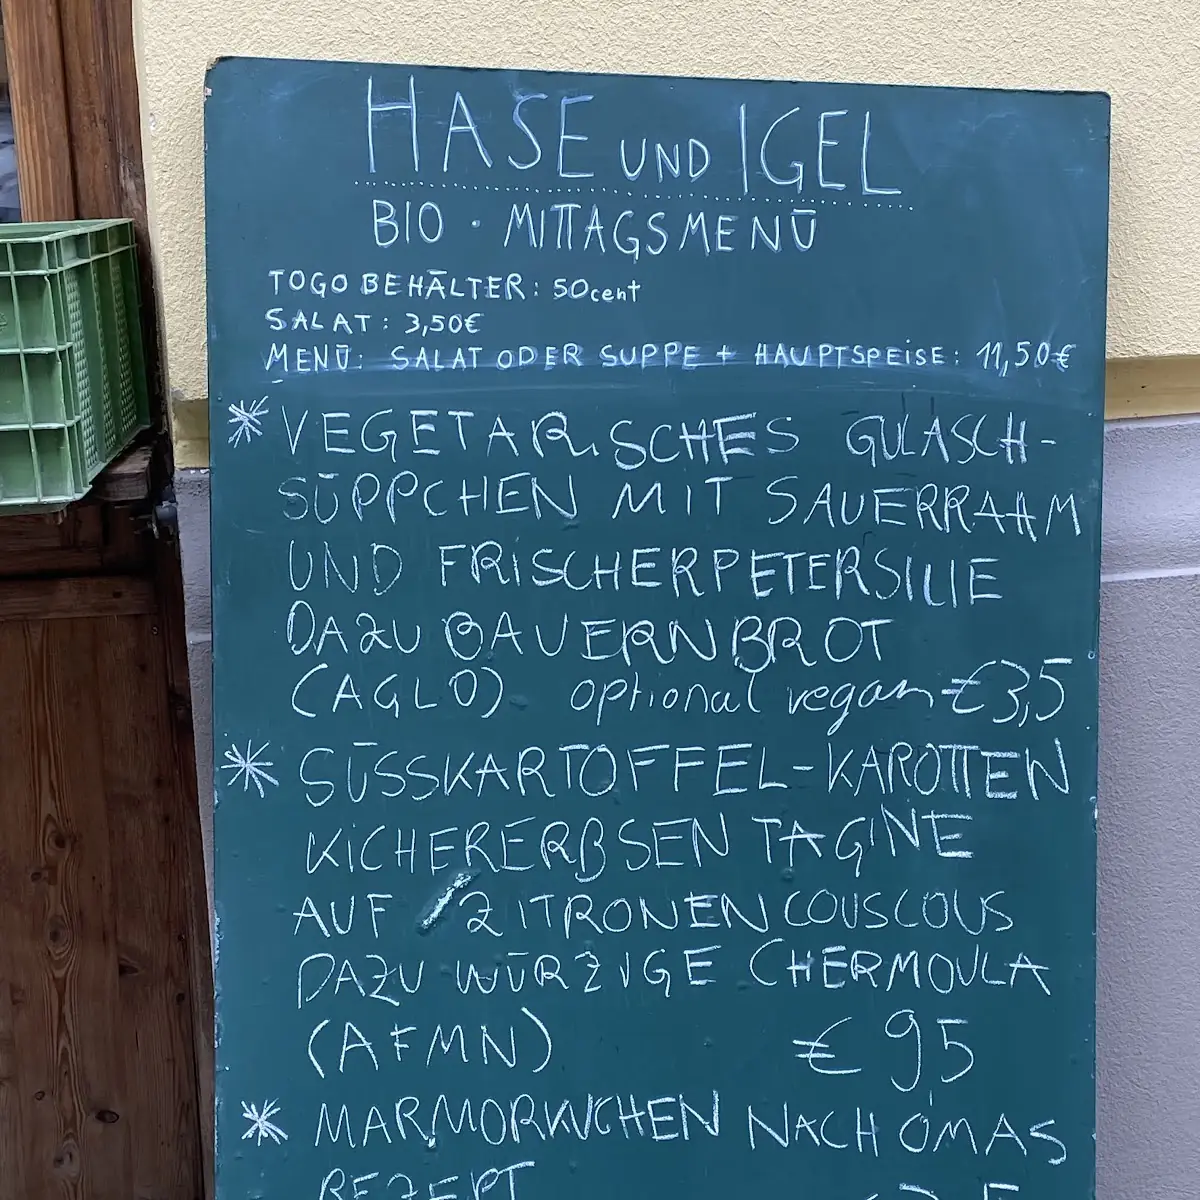 HASE UND IGEL
BIO · MITTAGSMENÜ
TOGO BEHÄLTER: 50cent
SALAT: 3,50€
MENÜ: SALAT ODER SUPPE + HAUPTSPEISE: 11,50€
* VEGETARISCHES GULASCH-
SÜPPCHEN MIT SAUERRAHM
UND FRISCHER PETERSILIE
DAZU BAUERNBROT
(AGLO) optional vegan €3,5
* SÜSSKARTOFFEL-KAROTTEN
KICHERERBSEN TAGINE
AUF ZITRONENCOUSCOUS
DAZU WÜRZIGE CHERMOULA
(AFMN) € 9,5
* MARMORKUCHEN NACH OMAS
REZEPT